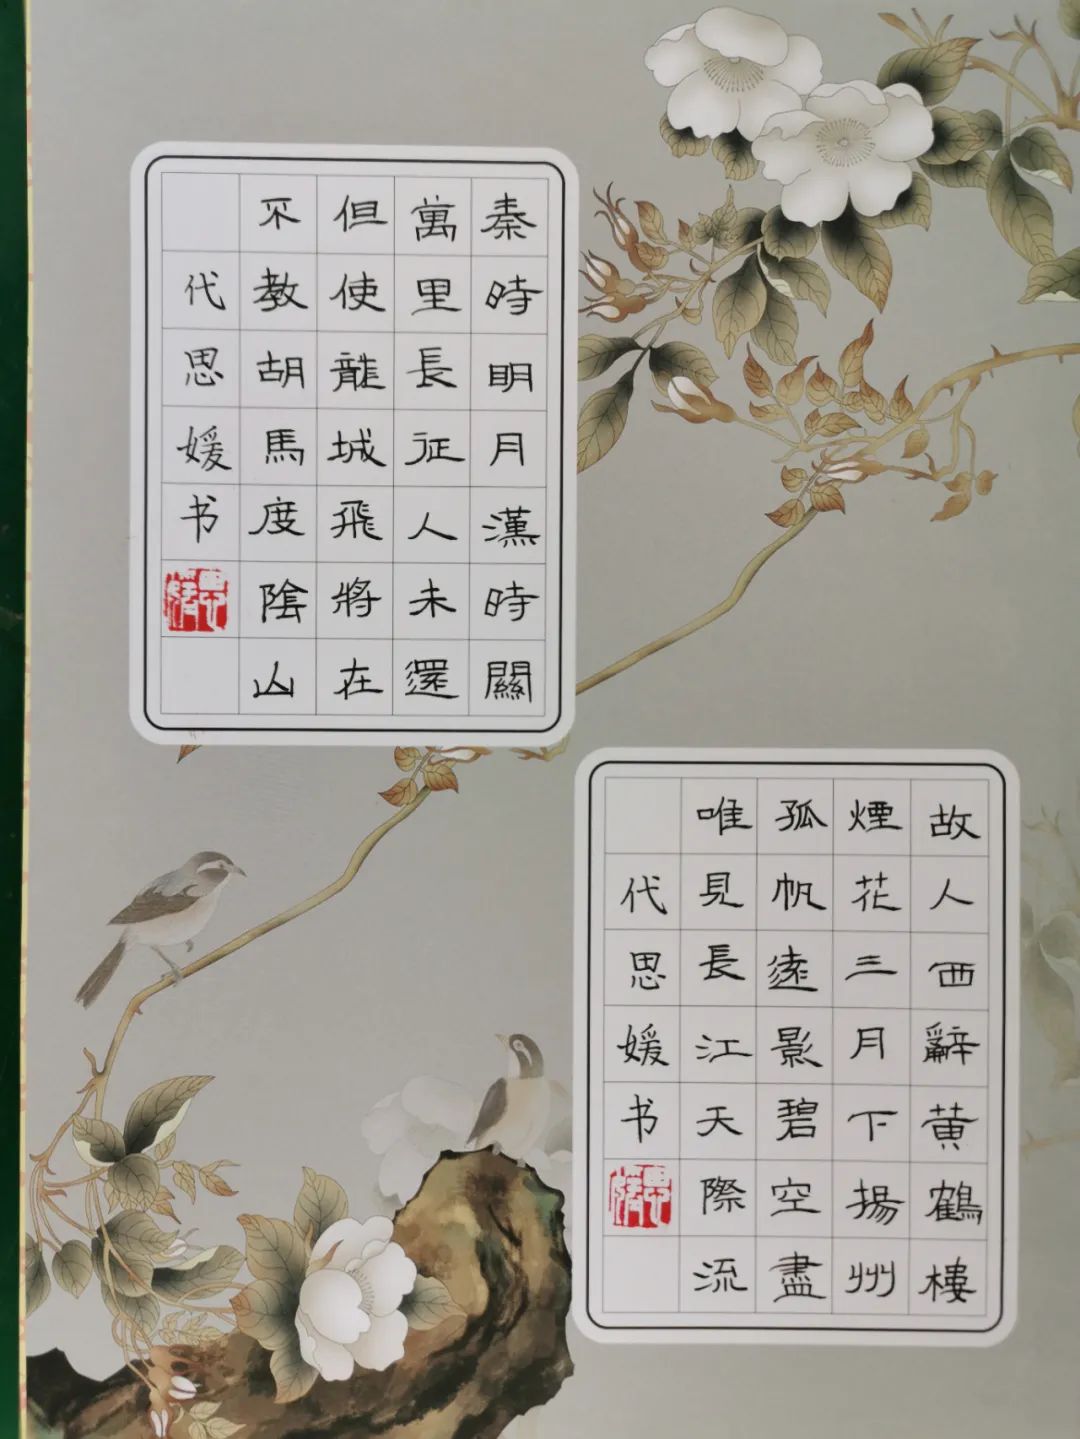 秦時明月漢時關
萬里長征人未還
但使龍城飛將在
不教胡馬度陰山
代思媛书
思媛
故人西辭黄鶴樓
煙花三月下揚州
孤帆遠影碧空盡
唯見長江天際流
代思媛书
思媛